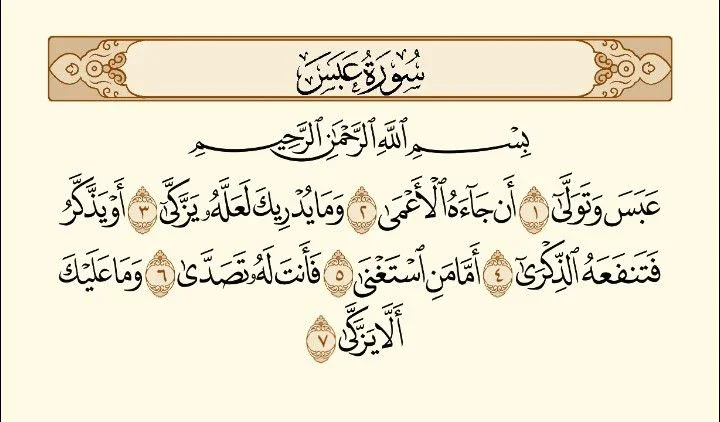 سُورَةُ عَبَسَ
بِسْمِ ٱللَّهِ ٱلرَّحْمَٰنِ ٱلرَّحِيمِ
عَبَسَ وَتَوَلَّىٰٓ ١ أَن جَآءَهُ ٱلْأَعْمَىٰ ٢ وَمَا يُدْرِيكَ لَعَلَّهُۥ يَزَّكَّىٰٓ ٣ أَوْ يَذَّكَّرُ
فَتَنفَعَهُ ٱلذِّكْرَىٰٓ ٤ أَمَّا مَنِ ٱسْتَغْنَىٰ ٥ فَأَنتَ لَهُۥ تَصَدَّىٰ ٦ وَمَا عَلَيْكَ
أَلَّا يَزَّكَّىٰ ٧